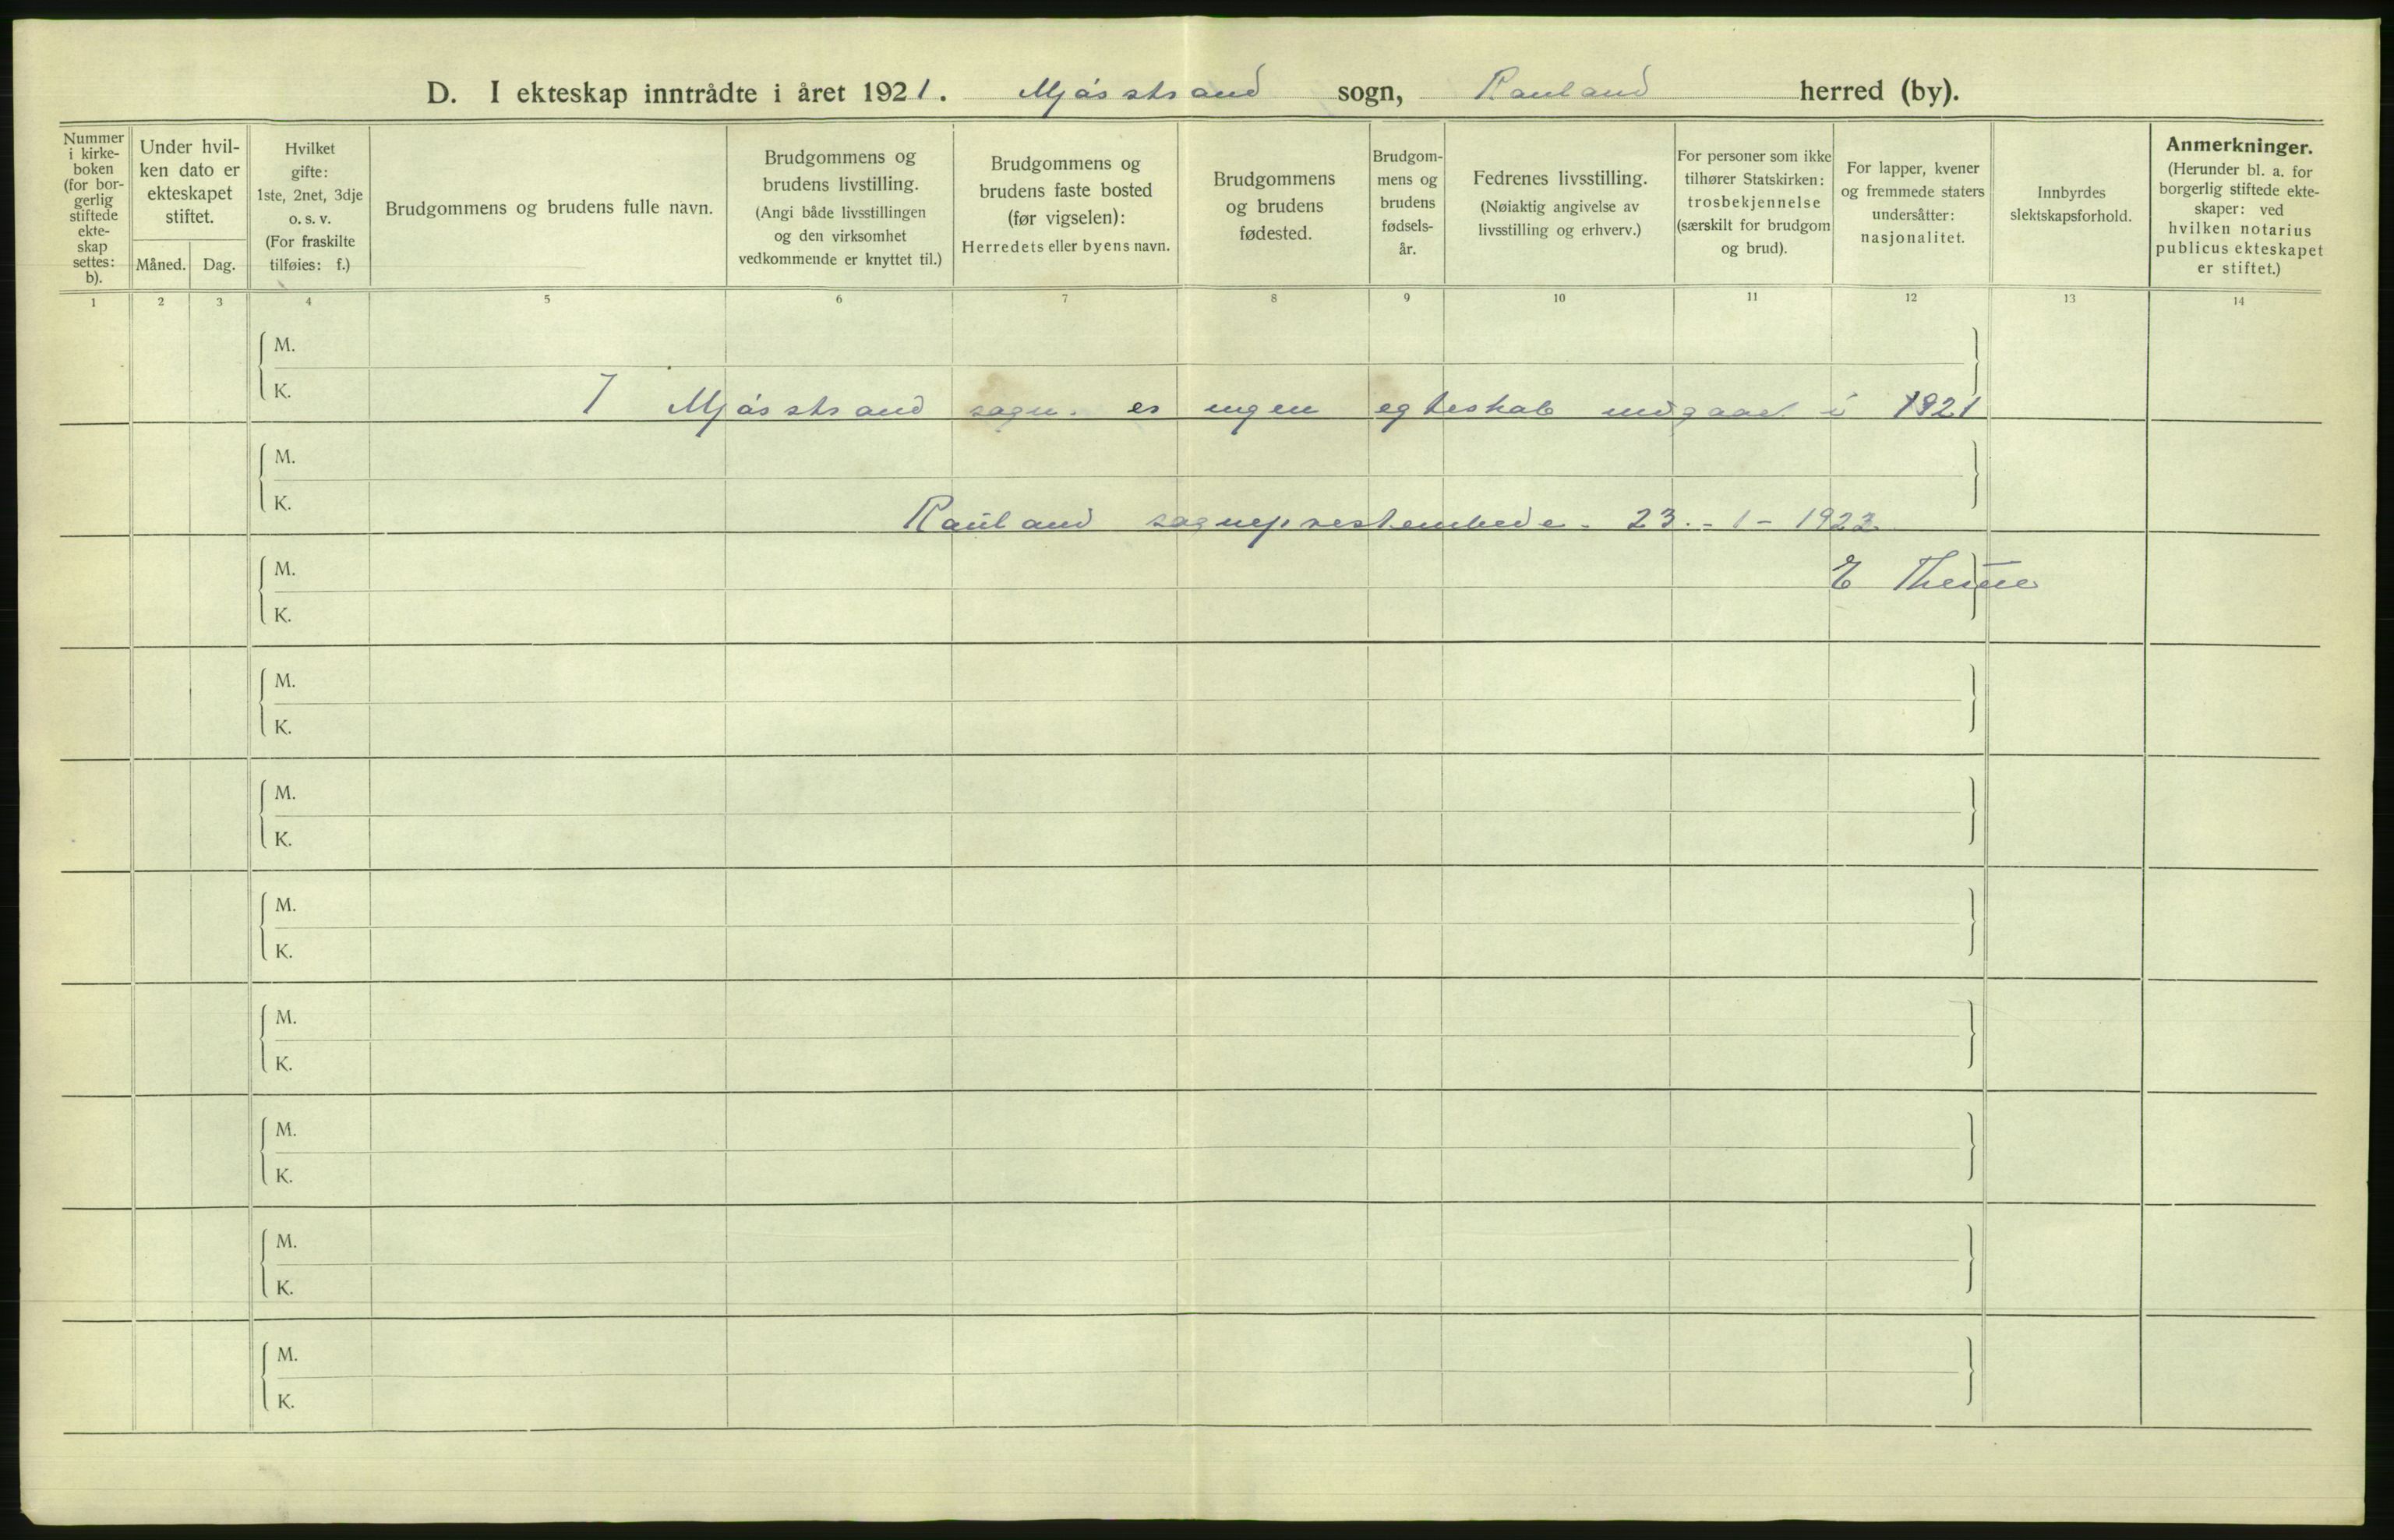 D. I ekteskap inntrådte i året 1921. Mjøsstrand sogn, Rauland herred (by).
Nummer i kirke-boken (for bor-gerlig stiftede ekte-skap settes: b).
Under hvil-ken dato er ekteskapet stiftet.
Måned. Dag.
Hvilket gifte: 1ste, 2net, 3dje o. s. v. (For fraskilte tilføies: f.)
Brudgommens og brudens fulle navn.
Brudgommens og brudens livstilling. (Angi både livsstillingen og den virksomhet vedkommende er knyttet til.)
Brudgommens og brudens faste bosted (før vigselen): Herredets eller byens navn.
Brudgommens og brudens fødested.
Brudgom-mens og brudens fødsels-år.
Fedrenes livsstilling. (Nøiaktig angivelse av livsstilling og erhverv.)
For personer som ikke tilhører Statskirken: trosbekjennelse (særskilt for brudgom og brud).
For lapper, kvener og fremmede staters undersåtter: nasjonalitet.
Innbyrdes slektskapsforhold.
Anmerkninger. (Herunder bl. a. for borgerlig stiftede ekte-skaper: ved hvilken notarius publicus ekteskapet er stiftet.)
1 2 3 4 5 6 7 8 9 10 11 12 13 14
M.
K. I Mjøsstrand sogn. er ingen egteskab indgaaet i 1921
M.
K. Rauland sogneprestembede. 23.-1-1922
M. E
K.
M.
K.
M.
K.
M.
K.
M.
K.
M.
K.
M.
K.
M.
K.